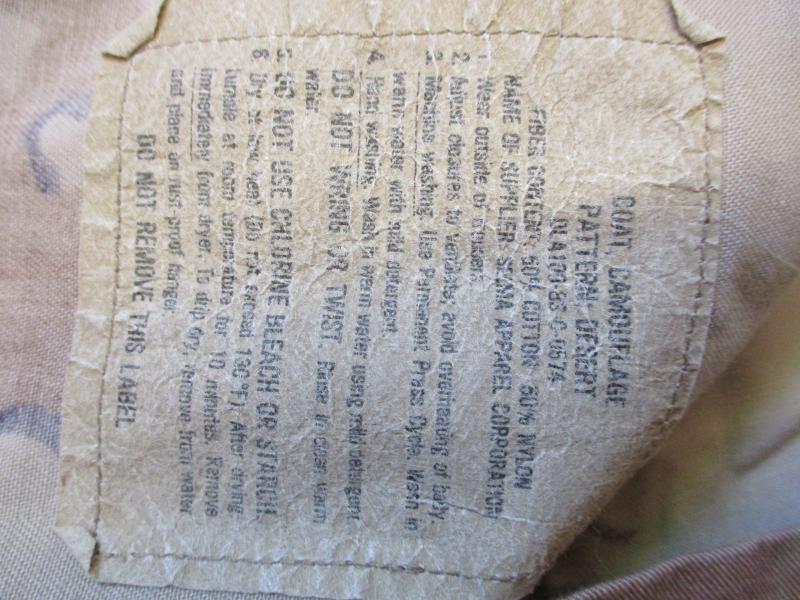 COAT, CAMOUFLAGE
PATTERN: DESERT
DLA100-86-C-0574
FIBER CONTENT: 50% COTTON 50% NYLON
NAME OF SUPPLIER SELMA APPAREL CORPORATION
1. Wear outside of trousers.
2. Adjust closures to ventilate; avoid overheating of body.
3. Machine washing. Use Permanent Press Cycle. Wash in
warm water with mild detergent.
4. Hand washing. Wash in warm water using mild detergent.
DO NOT WRING OR TWIST. Rinse in clear warm
water.
5. DO NOT USE CHLORINE BLEACH OR STARCH.
6. Dry at low heat (Do not exceed 130°F). After drying
tumble at room temperature for 10 minutes. Remove
immediately from dryer. To drip dry, remove from water
and place on rust-proof hanger.
DO NOT REMOVE THIS LABEL